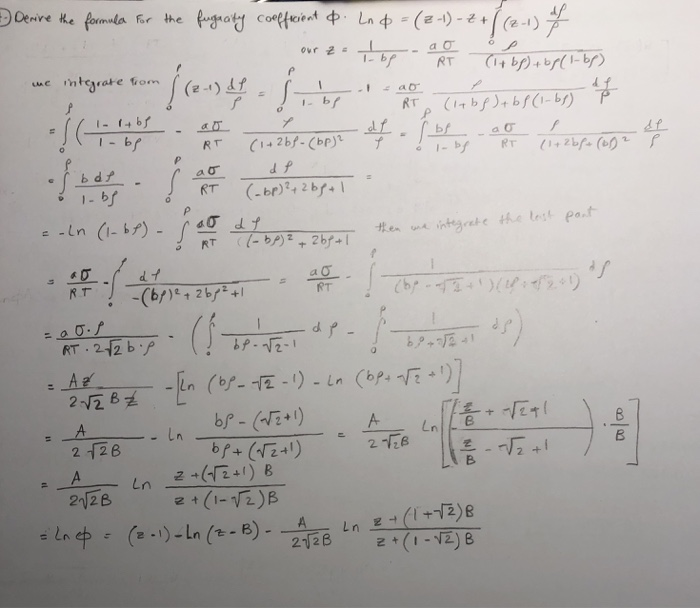 Derive the formula for the fugacity coefficient Φ. Ln Φ = (z-1) - z + ∫₀^ρ (z-1) dρ/ρ
our z = 1/(1-bρ) - aσ/RT ρ/((1+bρ)+bρ(1-bρ))
we integrate from ∫₀^ρ (z-1) dρ/ρ = ∫₀^ρ 1/(1-bρ) - 1 - aσ/RT ρ/((1+bρ)+bρ(1-bρ)) dρ/ρ
= ∫₀^ρ (1-1+bρ)/(1-bρ) - aσ/RT ρ/(1+2bρ-(bρ)²) dρ/ρ = ∫₀^ρ bρ/(1-bρ) - aσ/RT ρ/(1+2bρ-(bρ)² dρ/ρ
= ∫₀^ρ b dρ/(1-bρ) - ∫₀^ρ aσ/RT dρ/((-bρ)²+2bρ+1) =
= -Ln (1-bρ) - ∫₀^ρ aσ/RT dρ/((-bρ)²+2bρ+1) then we integrate the last part
= aσ/RT - ∫₀^ρ dρ/(-(bρ)²+2bρ²+1) = aσ/RT - ∫₀^ρ 1/((bρ-√2+1)(bρ+√2+1)) dρ
= aσ·ρ/(RT·2√2 b·ρ) - (∫₀^ρ 1/(bρ-√2-1) dρ - ∫₀^ρ 1/(bρ+√2+1) dρ)
= Az/(2√2 Bz) - [Ln (bρ-√2-1) - Ln (bρ+√2+1)]
= A/(2√2B) - Ln (bρ-(√2+1))/(bρ+(√2+1)) = A/(2√2B) Ln [((z/B + √2+1)/(z/B - √2+1)) · B/B]
= A/(2√2B) Ln (z+(√2+1)B)/(z+(1-√2)B)
= Ln Φ = (z-1) - Ln (z-B) - A/(2√2B) Ln (z+(1+√2)B)/(z+(1-√2)B)